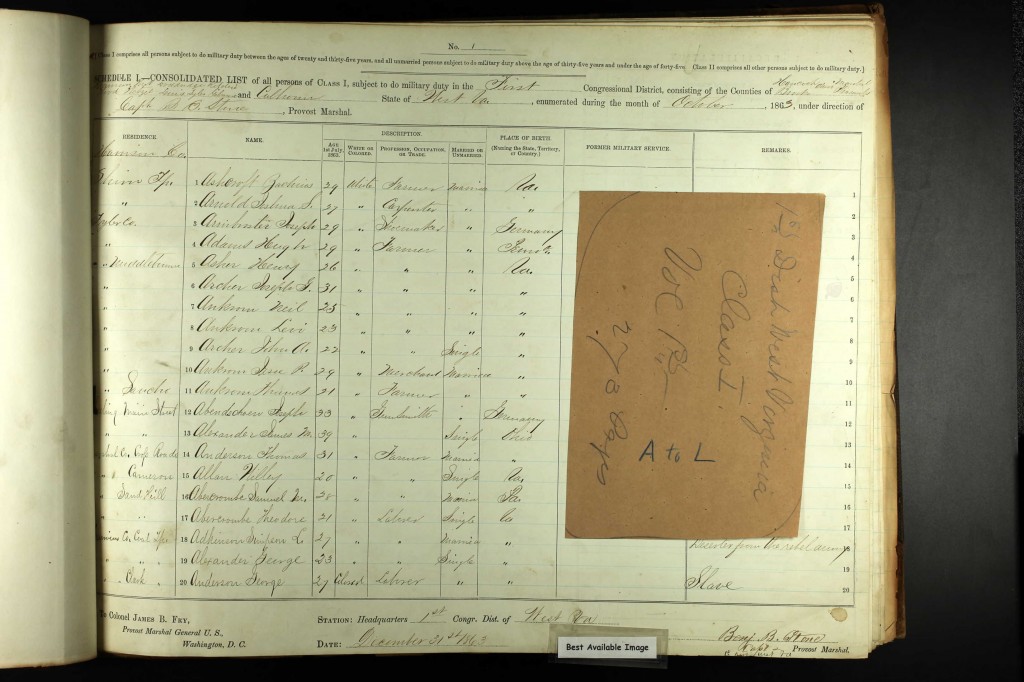 No. 1
Class I comprises all persons subject to do military duty between the ages of twenty and thirty-five years, and all unmarried persons subject to do military duty above the age of thirty-five years and under the age of forty-five. Class II comprises all other persons subject to do military duty.]
SCHEDULE I.—CONSOLIDATED LIST of all persons of CLASS I, subject to do military duty in the First Congressional District, consisting of the Counties of
and Calhoun State of West Va, enumerated during the month of October, 1863, under direction of
Capt B. Stone, Provost Marshal.
RESIDENCE. NAME. DESCRIPTION. PLACE OF BIRTH. FORMER MILITARY SERVICE. REMARKS.
AGE 1st July, 1863. WHITE OR COLORED. PROFESSION, OCCUPATION, OR TRADE. MARRIED OR UNMARRIED. (Naming the State, Territory, or Country.)
Harrison Co.
1 Ashcroft 29 White Farmer Married Va. 1
" 2 Arnold Joshua S. 27 " Carpenter " " 2
Tyler Co. 3 Joseph 29 " Shoemaker " Germany 3
" 4 Adams 29 " Farmer " 4
" Middlebourne 5 Asher Henry 26 " " " Va. 5
" 6 Archer Joseph G. 31 " " " " 6
" 7 Ankrom Neil 25 " " " " 7
" 8 Ankrom Levi 23 " " " " 8
" 9 Archer John A. 22 " " Single " 9
" 10 Ankrom R. 29 " Merchant Married " 10
" 11 Ankrom 21 " Farmer " " 11
Main Street 12 Joseph 33 " Gunsmith " Germany 12
" 13 Alexander James M. 39 " Single Ohio 13
14 Anderson Thomas 31 " Farmer Married " 14
" Cameron 15 Allan 20 " " Single Va. 15
" Sand Hill 16 Abercrombe Samuel M. 28 " " Married Pa. 16
" 17 Abercrombe Theodore 21 " Labrer Single Va 17
Co. Coal 18 Adkinson Simpson L. 27 " " Married " Deserter from the rebel army 18
" 19 Alexander George 23 " " Single " 19
" 20 Anderson George 27 Colored Labrer " " Slave 20
1st Dist West Virginia
Class I.
Vol 1
273 Pages
A to L
To Colonel JAMES B. FRY,
Provost Marshal General U. S.,
Washington, D. C.
STATION: Headquarters 1st Congr. Dist. of West Va
DATE: December 31st 1863
Benj B. Stone
Capt Provost Marshal.
Best Available Image